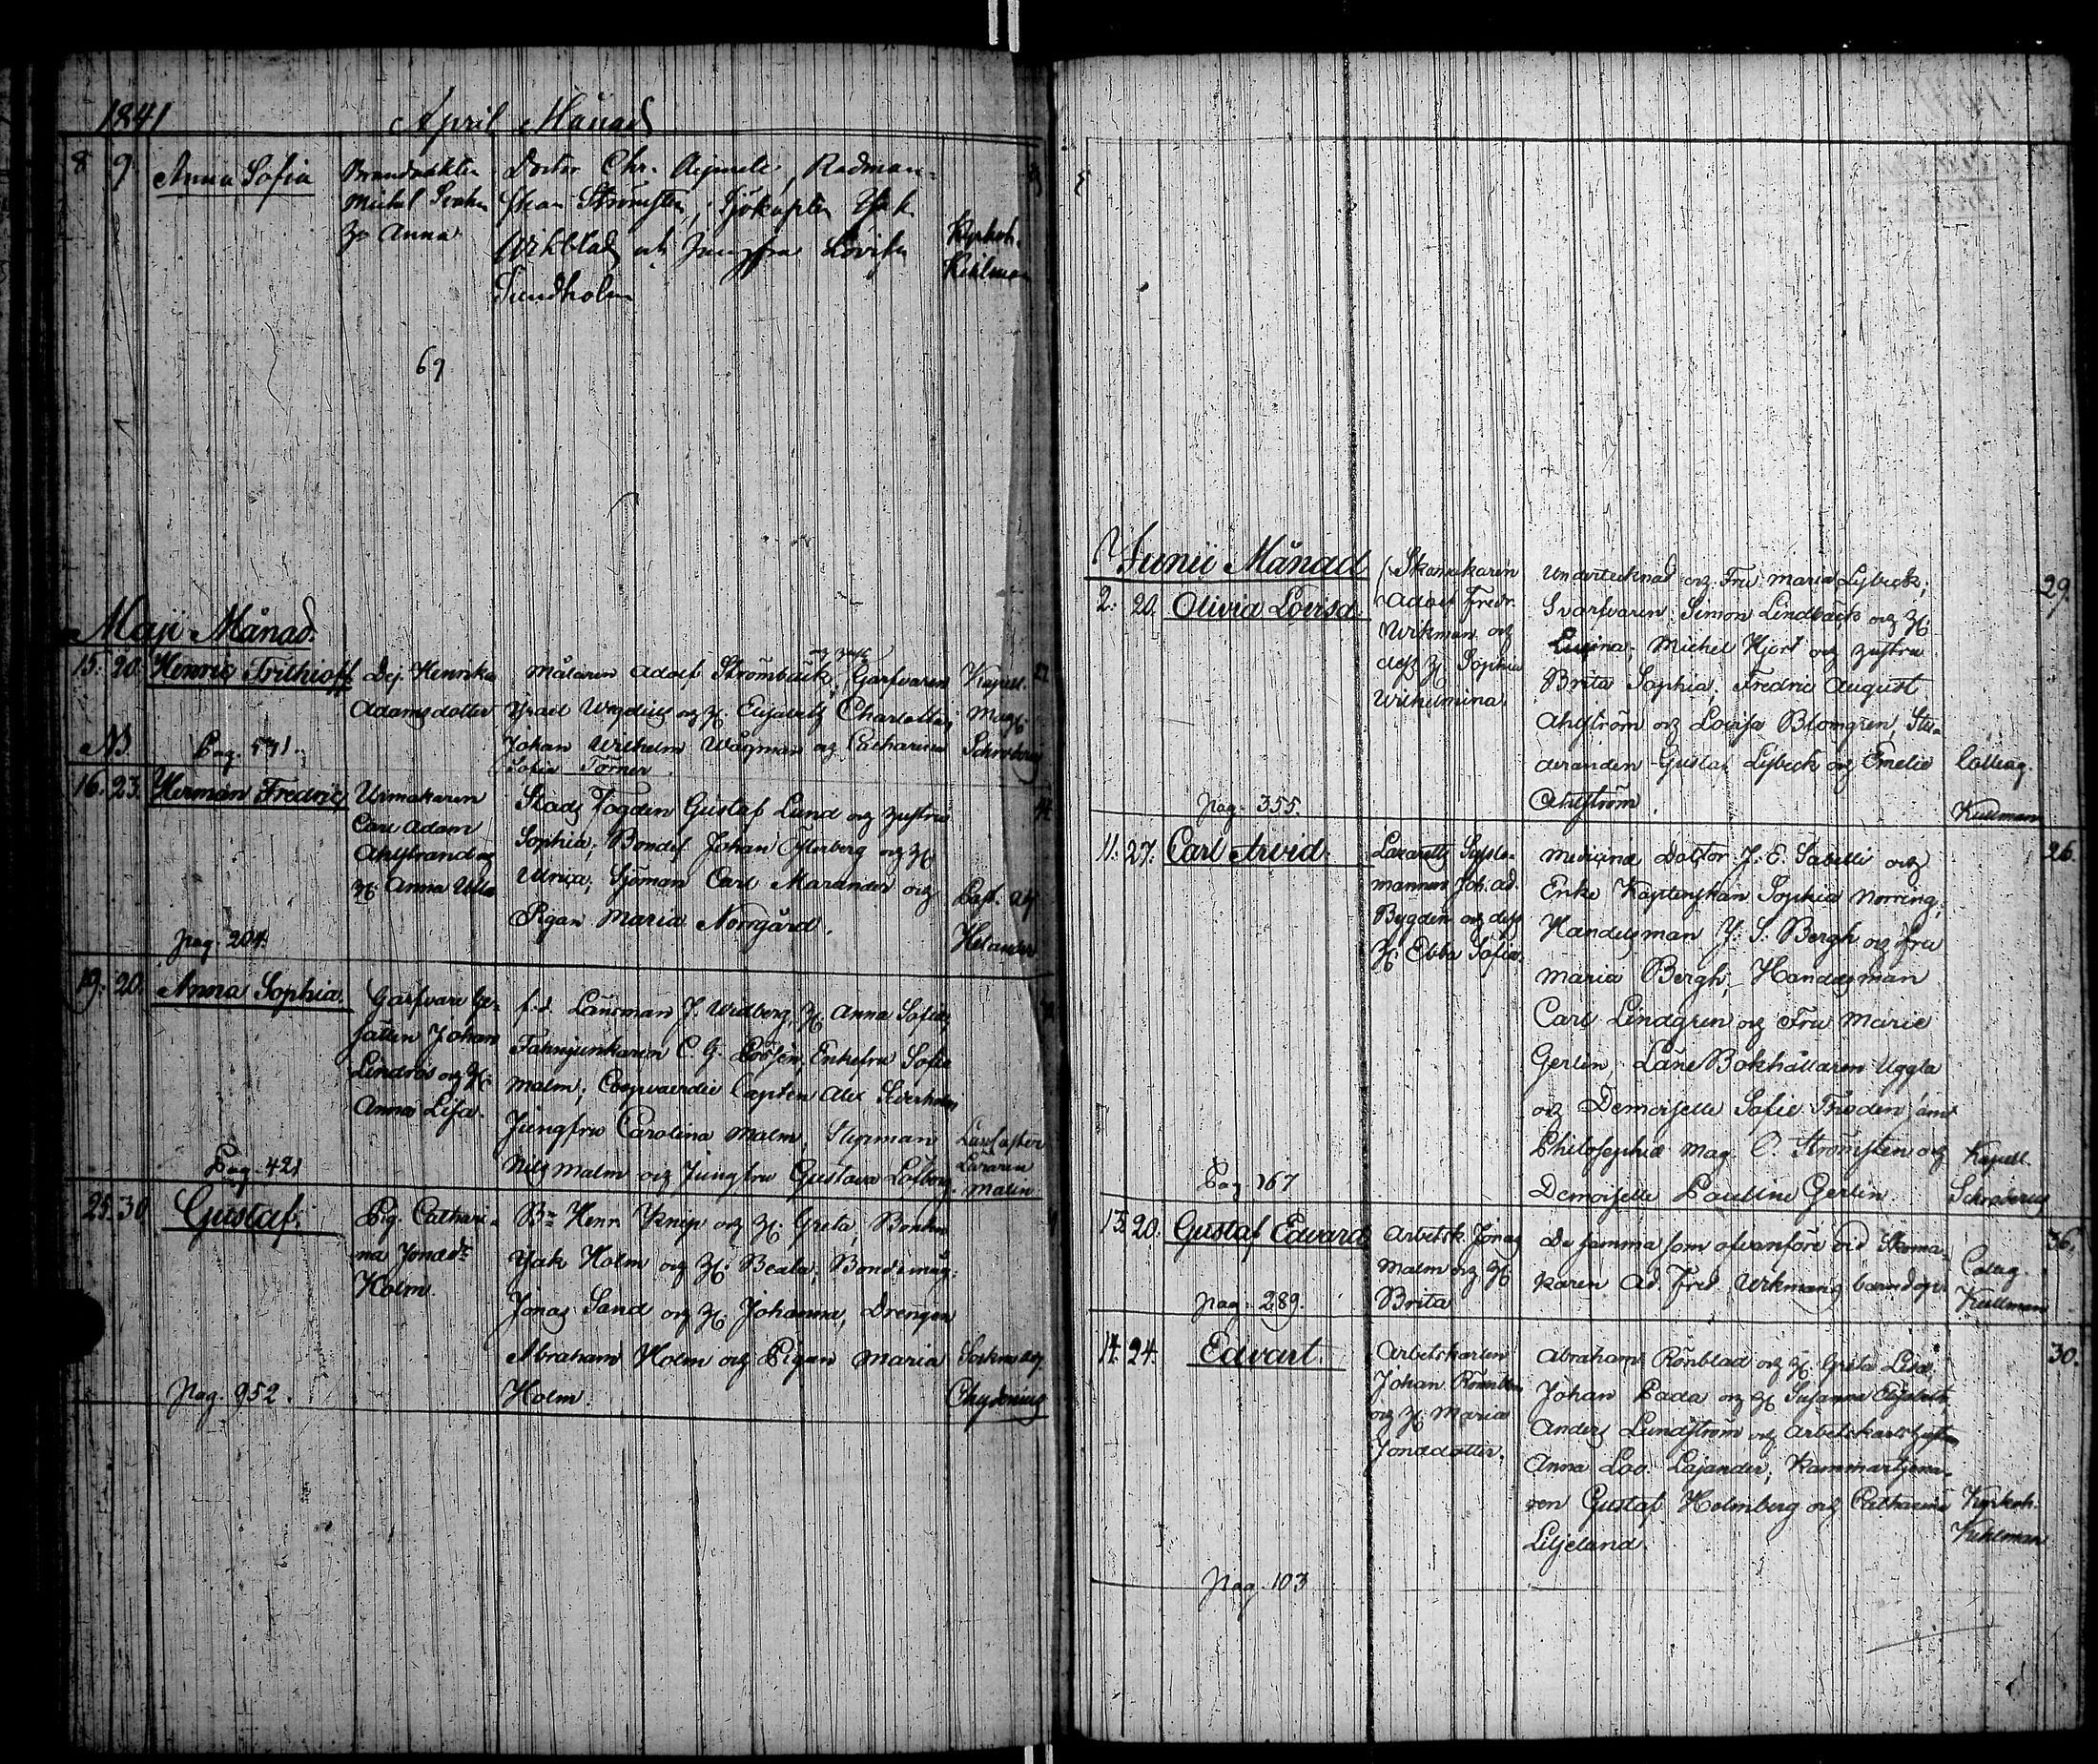 1841 April Månad
8 9 Anna Sofia
Michel Svahn
Anna
Doctor Chr.
och Jungfru Lovisa
Sundholm
Kyrkoh.
69
Maji Månad.
15. 20. Henric Frithioff
Dej. Henrika
Adamsdotter
Målaren Adolf Strömbäck, Garfvaren
Elisabeth Charlotta,
Johan Wilhelm Wågman och Catharina
Sofia Törner.
Kapell.
Mag.
NB Pag. 571.
16. 23. Herman Fredric
Urmakaren
Carl Adam
Ahlstrand och
H. Anna Ulla
Stads Fogden Gustaf Lund och hustru
Sophia; Bonden Johan Österberg och H.
Ulrica; Sjöman Carl Marander och
Pigan Maria Norrgård.
Past. Adj.
Helander
pag. 204.
19. 20. Anna Sophia.
Garfvare Ge-
sällen Johan
Lindros och H.
Anna Lisa.
f.d. Länsman J. Widberg, H. Anna Sofia,
Fahnjunkaren C. G. Enkefru Sofia
Malm; Capten Alex
Jungfru Carolina Malm, Styrman
Nils Malm och Jungfru Gustava Löfberg.
Läraren
Malin
Pag. 421
25. 30 Gustaf.
Pig. Cathari-
na Jonæd:r
Holm.
Bn Henr. Knip och H. Greta, Bonden
Isak Holm och H. Beata; Bondemåg:
Jonas Sand och H. Johanna, Drengen
Abraham Holm och Pigan Maria
Holm.
Sockne adj.
Chydenius
pag. 952.
Junii Månad
2. 20. Olivia Lovisa.
Skomakaren
Adolf Fredr.
Wikman och
dess H. Sophia
Wilhelmina.
Undertecknad och Fru Maria Lybeck;
Svarfvaren Simon Lindbäck och H.
Michel Hjort och hustru
Brita Sophia. Fredric August
Ahlström och Lovisa Blomgren, Stu-
deranden Gustaf Lybeck och Emelie
Ahlström.
Colleag.
Kullman
29.
pag. 355.
11. 27. Carl Arvid.
Lazaretts Syslo-
mannen Joh. Ad.
Bygdén och dess
H. Ebba Sofia.
Medicinæ Doctor J. E. Sabelli och
Enke Kaptenskan Sophia Norring;
Handelsman J. S. Bergh och Fru
Maria Bergh; Handelsman
Carl Lindgren och Fru Marie
Gerlin, Läne Bokhållaren Uggla
och Demoiselle Sofie Thoden samt
Philosophiæ Mag. O. Strömsten och
Demoiselle Pauline Gerlin
Kapell.
26
Pag. 167
13. 20. Gustaf Edvard
Arbetsk. Jonas
Malm och H.
Brita
De samma som ofvanföre vid Skoma-
karen Ad. Fred. Wikmans barndop.
Colleg.
Kullman
36.
pag. 289.
14. 24. Edvart.
Arbetskarlen
Johan Rönnblad
och H. Maria
Jonædotter.
Abraham Rönblad och H. Greta Lisa.
Johan Pada och H. Susanna Elisabeth
Anders Lundström och Arbetskarls hustrun
Anna Lov. Lajander; Kammartjena-
ren Gustaf Holmberg och Catharina
Liljeland.
Kyrkoh.
Kihlman
30.
pag. 103